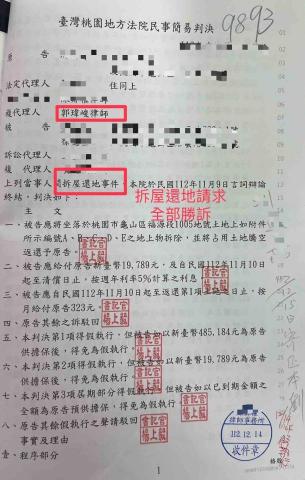 臺灣桃園地方法院民事簡易判決
9893
原告
法定代理人 住同上
複代理人 郭瑋峻律師
被告
訴訟代理人
複代理人
上列當事人間拆屋還地事件,本院於民國112年11月9日言詞辯論
終結,判決如下:
拆屋還地請求
全部勝訴
主文
一、被告應將坐落於桃園市龜山區福源段1005地號土地上如附件
所示編號A、B、C、D、E之地上物拆除,並將占用土地騰空
返還予原告。
二、被告應給付原告新臺幣19,789元,及自民國112年11月10日
起至清償日止,按週年利率5%計算之利息
三、被告應自民國112年11月10日起至返還第1項土地之日止,按
月給付原告323元。
四、原告其餘之訴駁回。
五、本判決第1項得假執行,但被告如以新臺幣485,184元為原告
供擔保後,得免為假執行。
六、本判決第2項得假執行,但被告如以新臺幣19,789元為原告
供擔保後,得免為假執行。
七、本判決第3項屆期部分得假執行,但被告如以已到期金額之
全額為原告預供擔保,得免為假執行。
八、原告其餘假執行之聲請駁回。
事實及理由
壹、程序部分
書記官
楊上毅
律師事務所
112.12.14
收件章
1